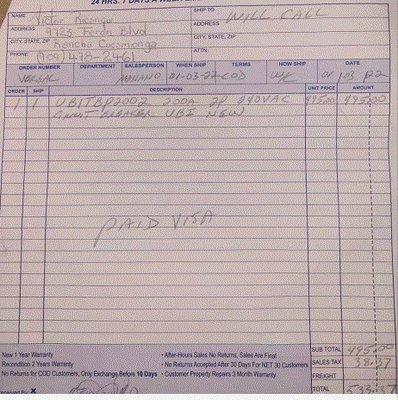 24 HRS. 7 DAYS A WEEK
NAME Victor
SHIP TO WILL CALL
ADDRESS 9725 Feron Blvd
ADDRESS
CITY, STATE, ZIP Rancho Cucamonga
CITY, STATE, ZIP
PHONE (909) 478
ATTN:
ORDER NUMBER DEPARTMENT SALESPERSON WHEN SHIP TERMS HOW SHIP DATE
VERBAL 01-03-22 COD W/C 01 03 22
ORDER SHIP DESCRIPTION UNIT PRICE AMOUNT
1 1 UBITBP2002 200A 2P 240VAC 495.00 495.00
BREAKER UBI NEW
PAID VISA
New 1 Year Warranty
Recondition 2 Years Warranty
No Returns for COD Customers, Only Exchange Before 10 Days
• After-Hours Sales No Returns, Sales Are Final
• No Returns Accepted After 30 Days For NET 30 Customers
• Customer Property Repairs 3 Month Warranty
SUB TOTAL 495.00
SALES TAX 38.37
FREIGHT
TOTAL 533.37
X